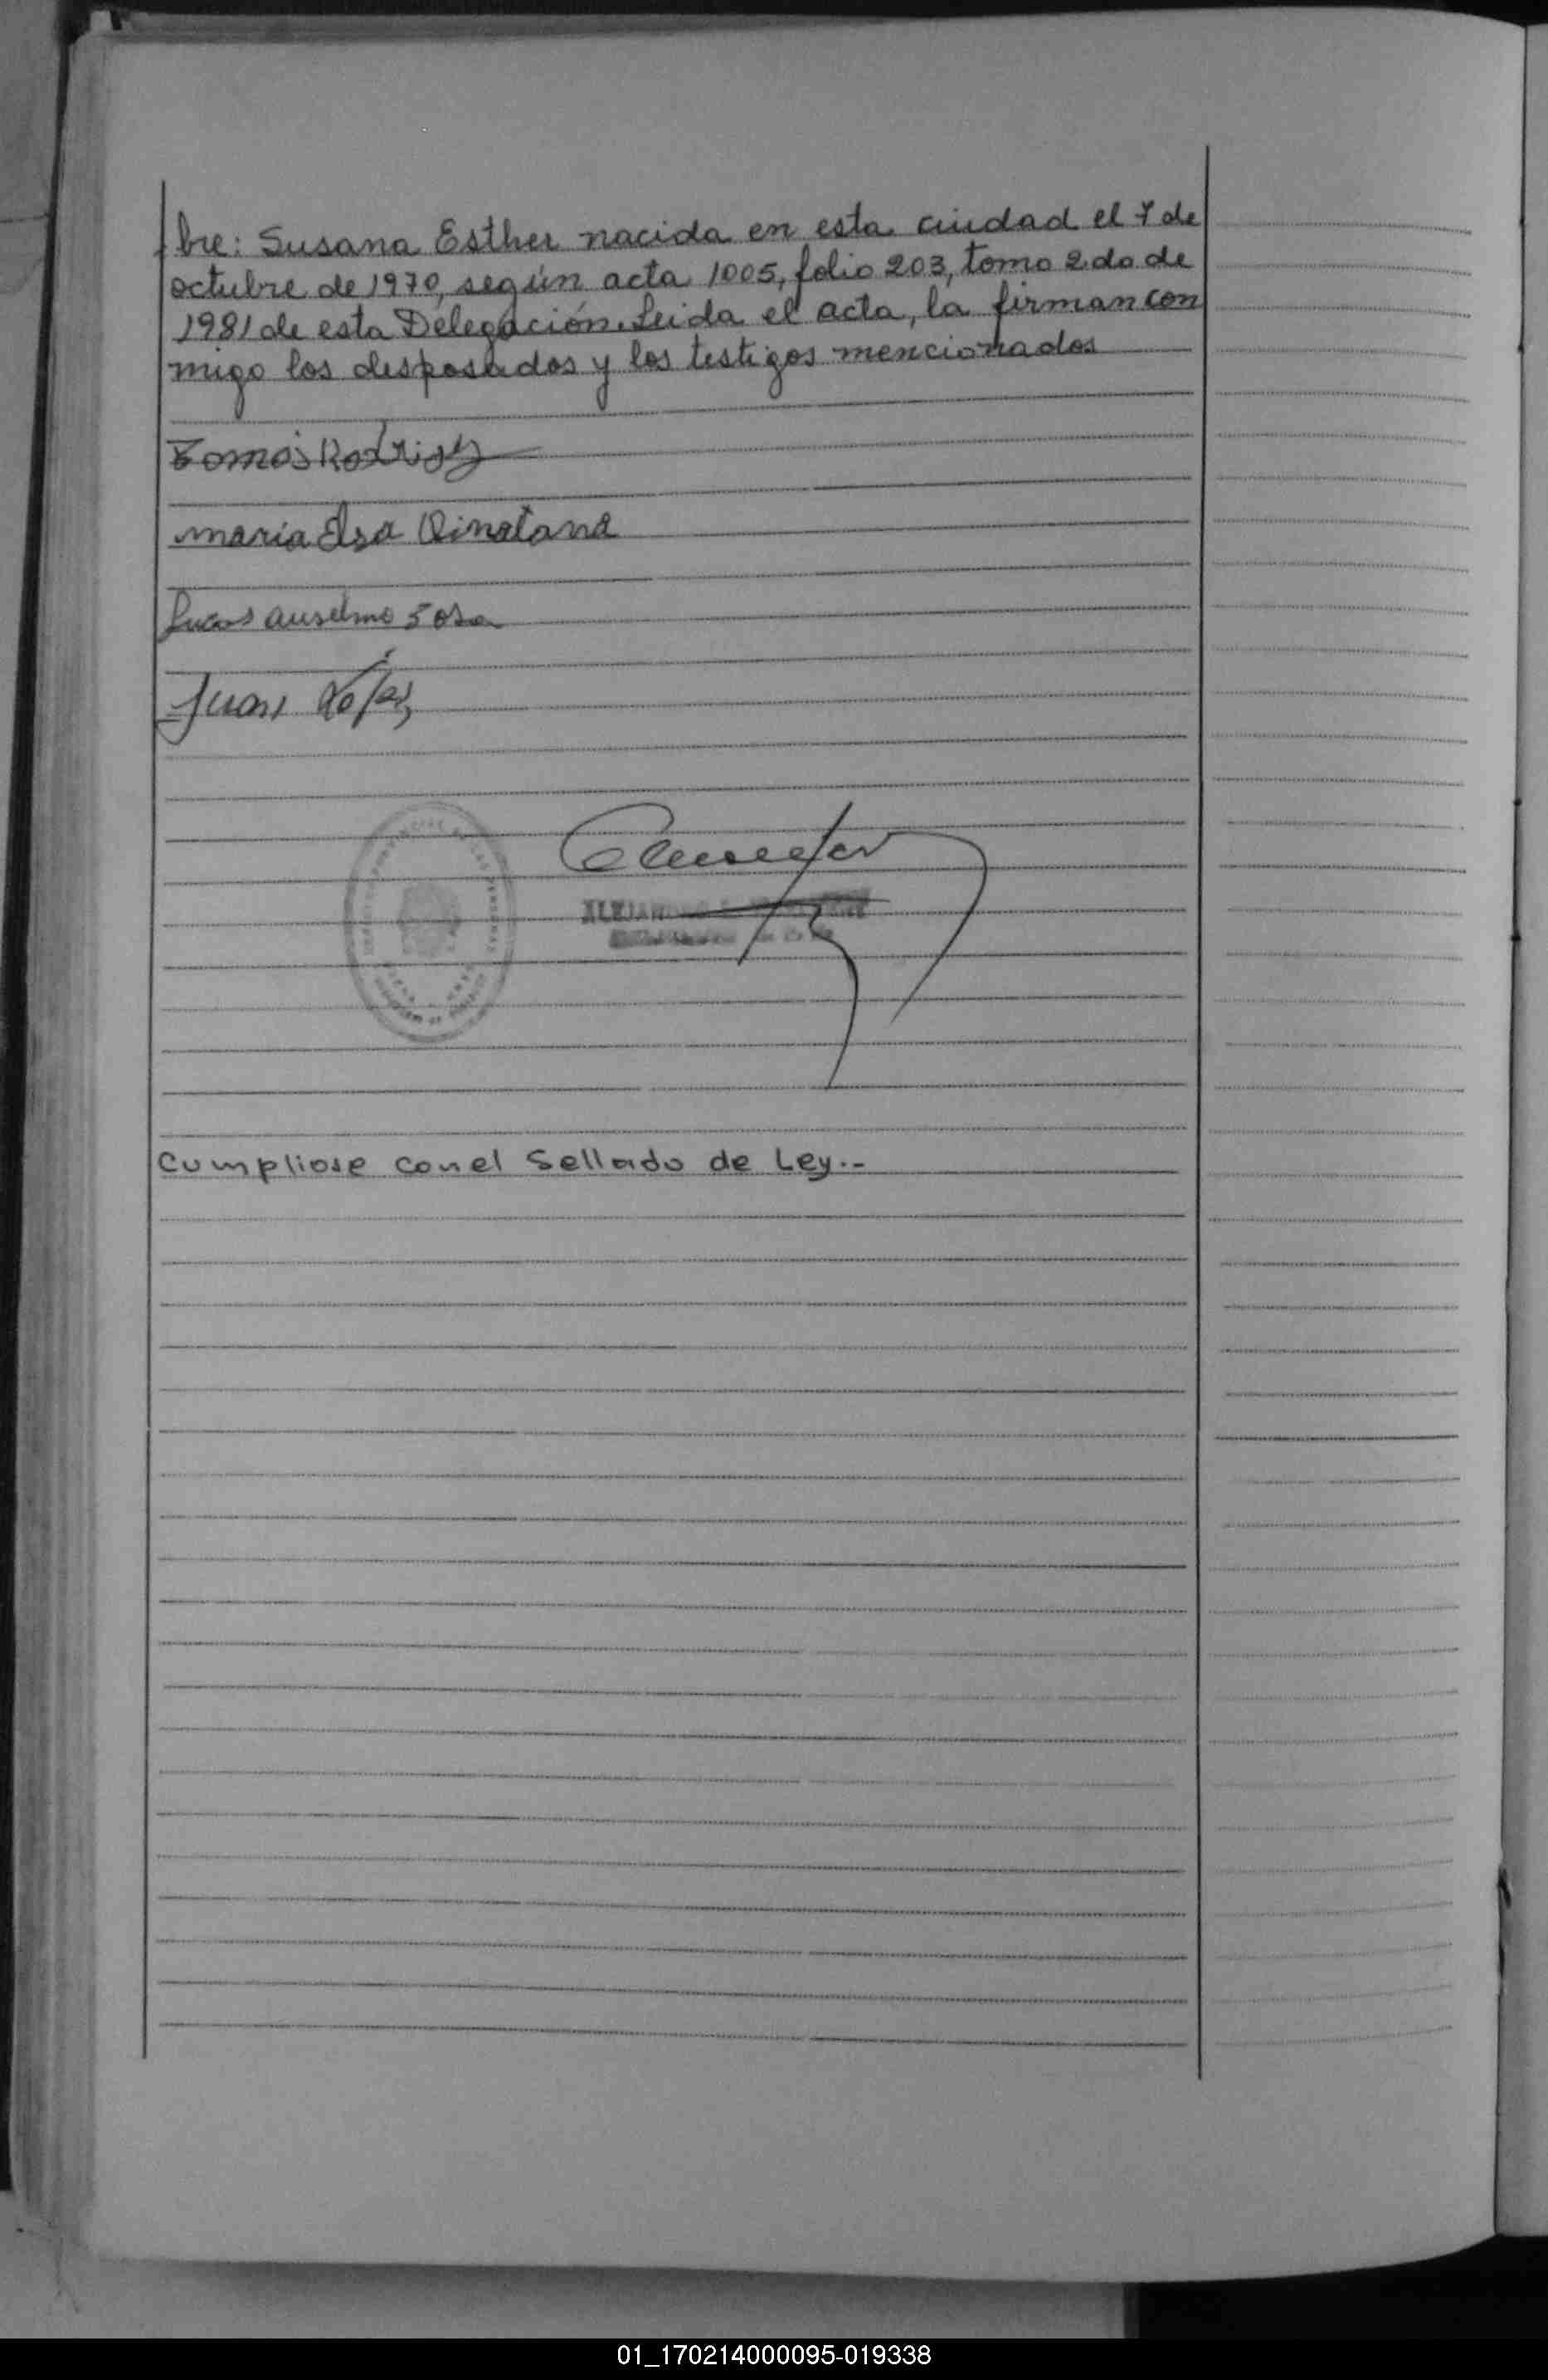 bre: Susana Esther nacida en esta ciudad el 7 de
octubre de 1970, según acta 1005, folio 203, tomo 2do de
1981 de esta Delegación. Leida el acta, la firman con
migo los desposados y los testigos mencionados
Tomás Rodrigz
maria Elsa Qinatana
Lucas anselmo Sosa
Juan
ALEJANDRO
Cumpliose con el Sellado de Ley.-
01_170214000095-019338